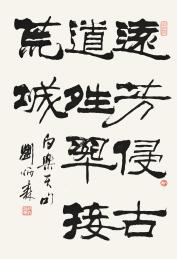 遠芳侵古
道晴翠接
荒城
白樂天句
劉炳森